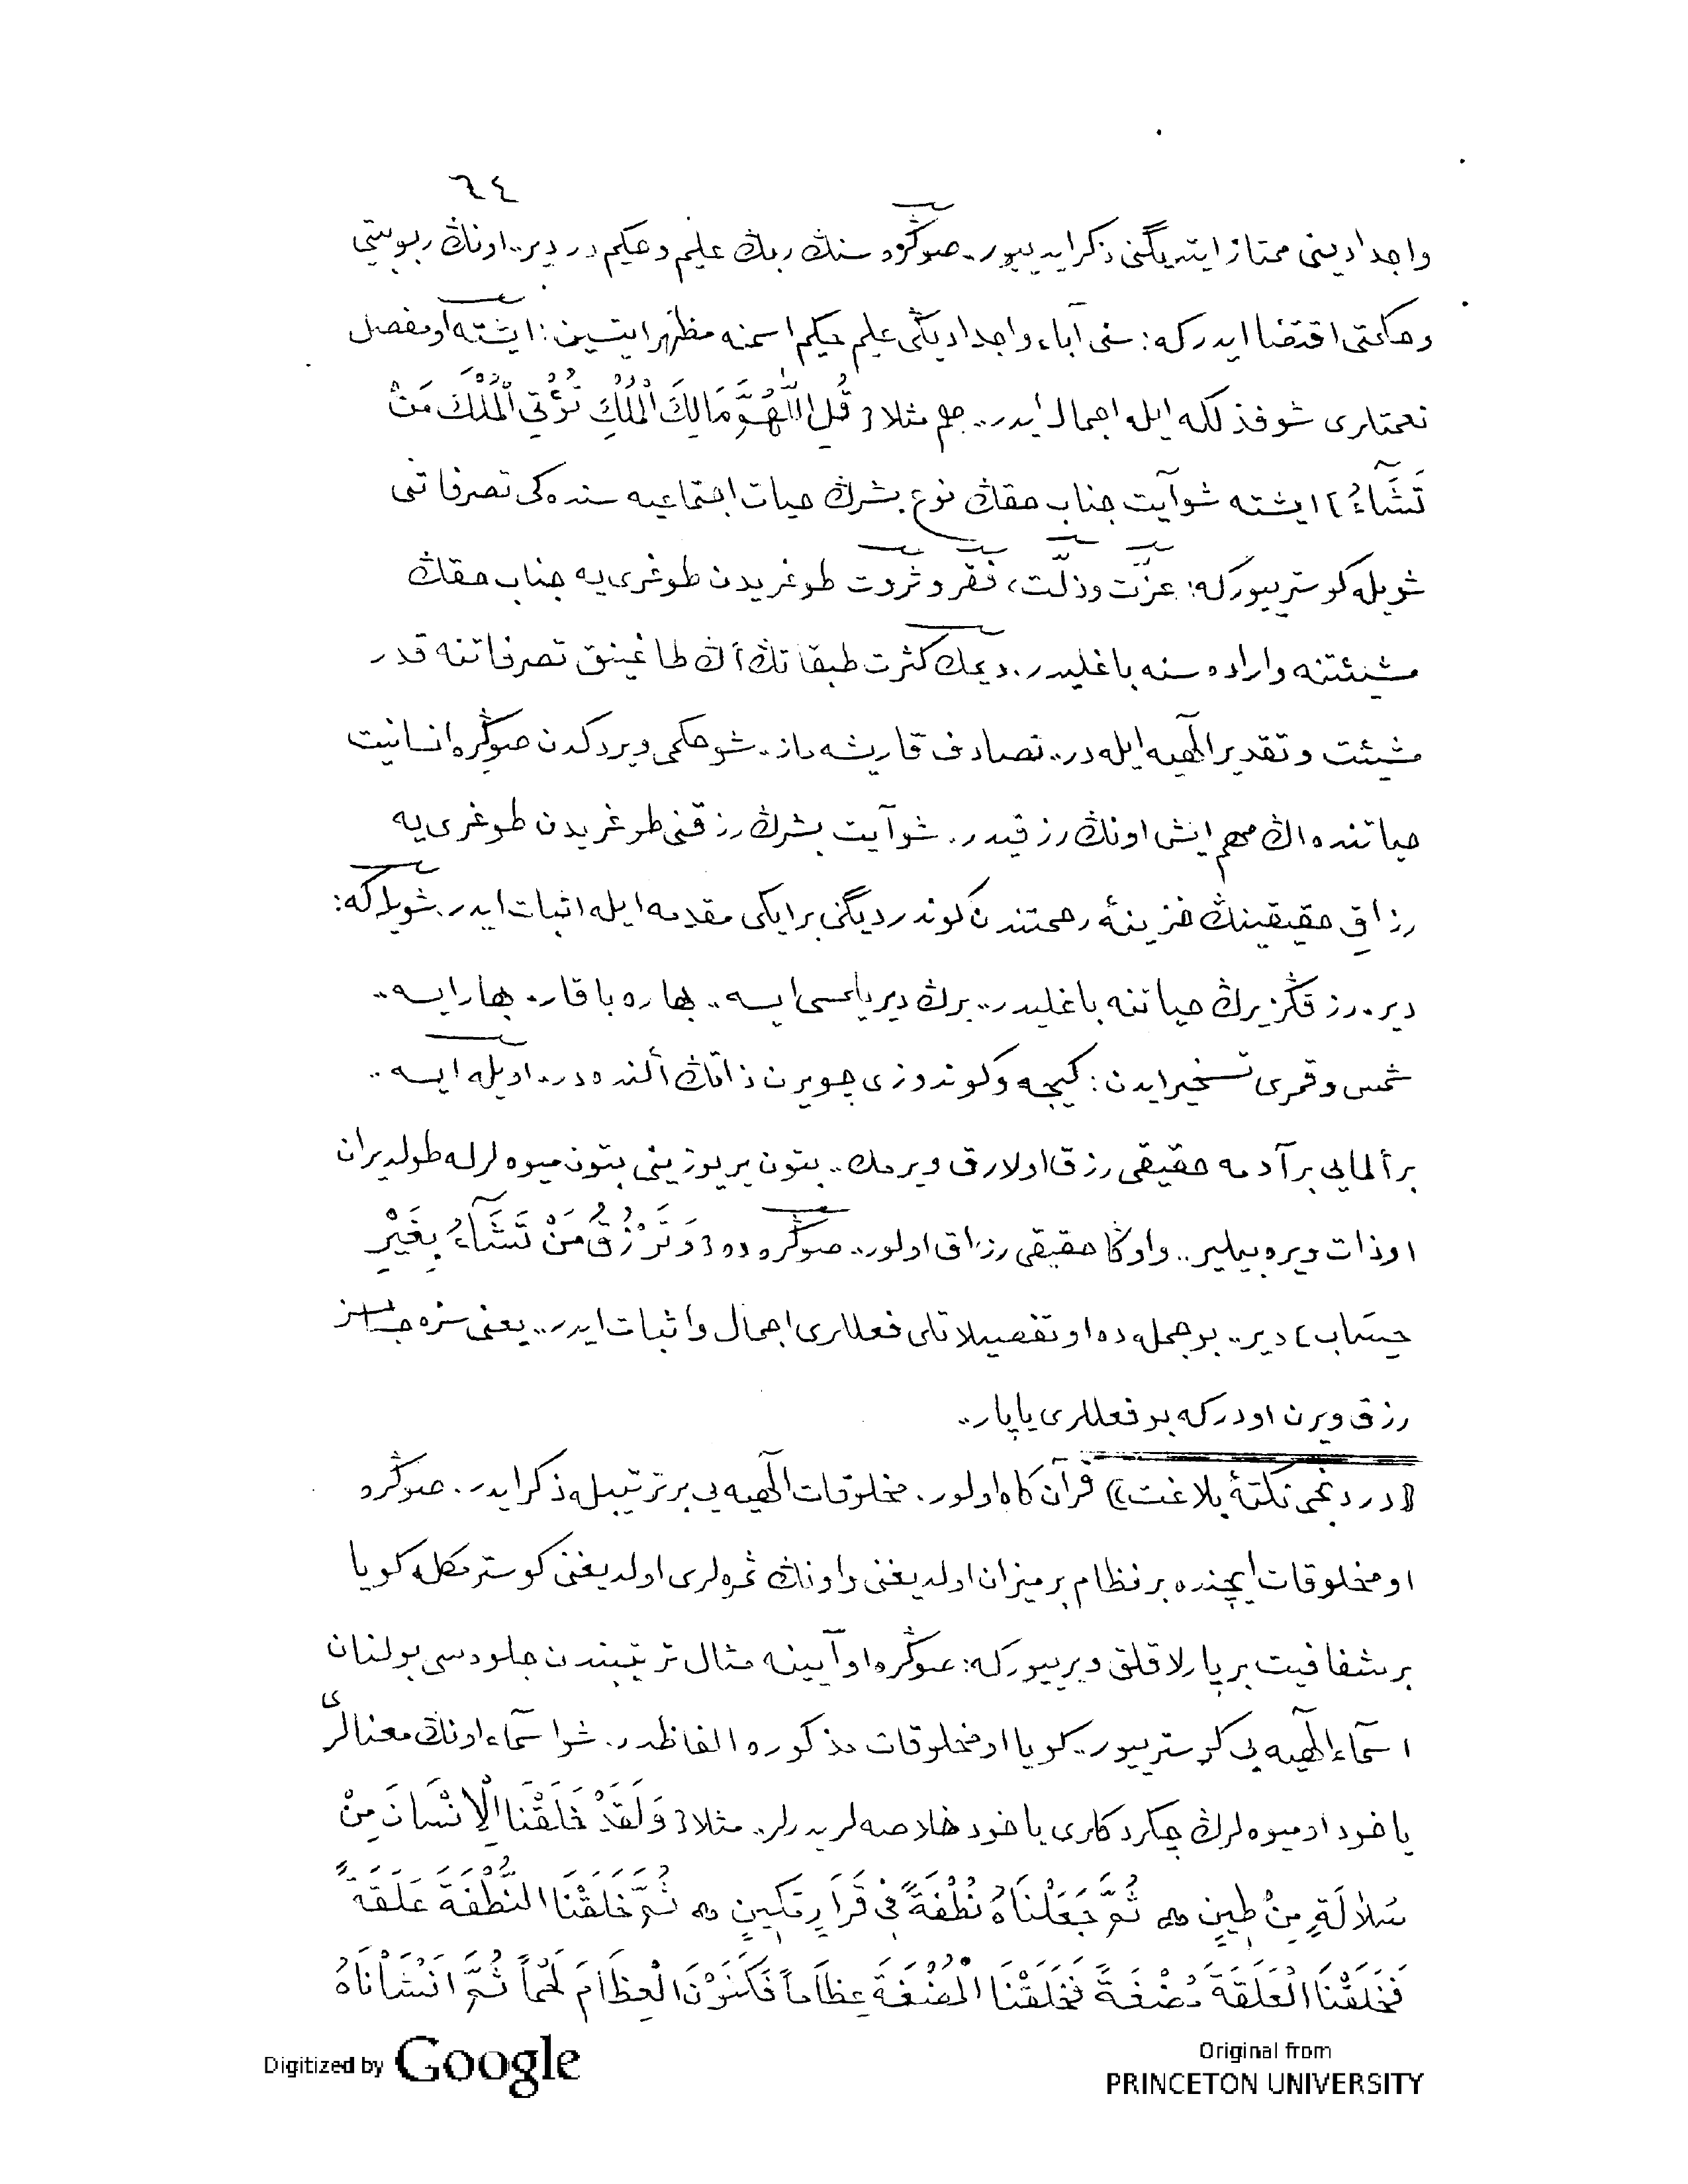 ٦٤
واجدادينى ممتاز ايتديگنى ذكر ايدييور.. صوڭره سنڭ ربڭ عليم و حكيم در دير.. اونڭ ربوبيتى
و حكمتى اقتضا ايدركه: سنى آباء واجداديڭى عليم حكيم اسمنه مظهر ايتسين: ايشته او مفصل
نعمتلرى شو فذلكه ايله اجمال ايدر.. هم مثلا {قُلِ اللّٰهُمَّ مَالِكَ الْمُلْكِ تُؤْتِي الْمُلْكَ مَنْ
تَشَٓاءُ} ايشته شو آيت جناب حقڭ نوع بشرڭ حيات اجتماعيه سنده كى تصرفاتنى
شويله كوسترييوركه: عزّت وذلّت، فقر و ثروت طوغريدن طوغرى يه جناب حقڭ
مشيئتنه واراده سنه باغليدر. ديمك كثرت طبقاتڭ أڭ طاغينق تصرفاتنه قدر
مشيئت و تقدير الٓهيه ايله در.. تصادف قاريشه ماز. شو حكمى ويردكدن صوڭره انسانيت
حياتنده اڭ مهم ايش اونڭ رزقيدر. شو آيت بشرڭ رزقنى طوغريدن طوغرى يه
رزاق حقيقينڭ خزينهٔ رحمتندن كوندرديگنى بر ايكى مقدمه ايله اثبات ايدر. شويله كه:
دير. رزقڭز يرڭ حياتنه باغليدر.. يرڭ ديريلمسى ايسه.. بهاره باقار. بهار ايسه..
شمس و قمرى تسخير ايدن: كيجه و كوندوزى چويرن ذاتڭ ألنده در.. اويله ايسه..
بر ألمايى بر آدمه حقيقى رزق اولارق ويرمك.. بتون ير يوزينى بتون ميوه لرله طولديران
او ذات ويره بيلير.. واوڭا حقيقى رزاق اولور.. صوڭره ده {وَتَرْزُقُ مَنْ تَشَٓاءُ بِغَيْرِ
حِسَابٍ} دير.. بو جمله ده او تفصيلاتلى فعللرى اجمال و اثبات ايدر.. يعنى سزه حسابسز
رزق ويرن اودركه بو فعللرى ياپار..
((دردنجى نكتهٔ بلاغت)) قرآن كاه اولور. مخلوقات الٓهيه يى بر ترتيبله ذكر ايدر. صوڭره
او مخلوقات ايچنده بر نظام بر ميزان اولديغنى و اونڭ ثمره لرى اولديغنى كوسترمكله كويا
بر شفافيت بر پارلاقلق ويرييوركه: صوڭره او آيينه مثال ترتيبندن جلوه سى بولنان
اسمآء الٓهيه يى كوسترييور.. كويا او مخلوقات مذكوره الفاظدر. شو اسمآء اونڭ معنالرى
ياخود او ميوه لرڭ چكردكلرى ياخود خلاصه لريدرلر.. مثلا {وَلَقَدْ خَلَقْنَا الْاِنْسَانَ مِنْ
سُلَالَةٍ مِنْ طِينٍ ۞ ثُمَّ جَعَلْنَاهُ نُطْفَةً فِى قَرَارٍ مَكِينٍ ۞ ثُمَّ خَلَقْنَا النُّطْفَةَ عَلَقَةً
فَخَلَقْنَا الْعَلَقَةَ مُضْغَةً فَخَلَقْنَا الْمُضْغَةَ عِظَاماً فَكَسَوْنَا الْعِظَامَ لَحْماً ثُمَّ اَنْشَاْنَاهُ
Digitized by Google
Original from
PRINCETON UNIVERSITY